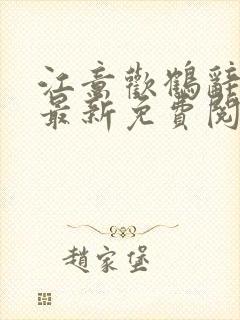 江意歡鶴辭
最新免費閱
趙家堡